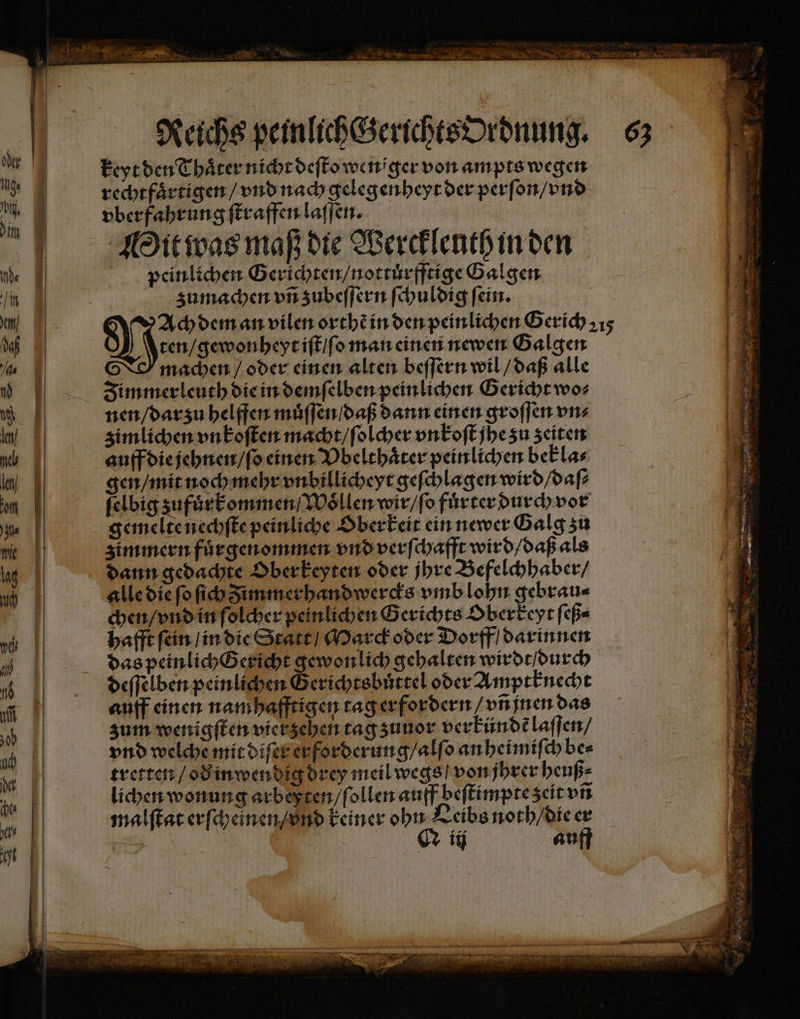 Reichs peinlich GerichtsOrdnung. 63
keyt den Thåter nicht deſto weniger von ampts wegen
rechtfårtigen / vnd nach gelegenheyt der perſon / vnd
vberfahrung ſtraffen laſſen.
Mit was maß die Wercklenth in den
peinlichen Gerichten / nottůrfftige Galgen
zumachen vñ zubeſſern ſchuldig ſein.
NAch dem an vilen orthẽ in den peinlichen Gerich 215
ten / gewonheyt iſt / ſo man einen newen Galgen
machen / oder einen alten beſſern wil / daß alle
Zimmerleuth die in demſelben peinlichen Gericht wo⸗
nen / darzu helffen můſſen / daß dann einen groſſen vn⸗
zimlichen vnkoſten macht / ſolcher vnkoſt jhe zu zeiten
auff die jehnen / ſo einen Vbelthåter peinlichen bekla⸗
gen / mit noch mehr vnbillicheyt geſchlagen wird / daſ⸗
ſelbig zufůrkommen / Wöllen wir / ſo fůrter durch vor
gemelte nechſte peinliche Oberkeit ein newer Galg zu
zimmern fůrgenommen vnd verſchafft wird / daß als
dann gedachte Oberkeyten oder jhre Befelchhaber /
alle die ſo ſich Zimmerhandwercks vmb lohn gebrau⸗
chen / vnd in ſolcher peinlichen Gerichts Oberkeyt ſeß⸗
hafft ſein / in die Statt / Marck oder Dorff / darinnen
das peinlich Gericht gewonlich gehalten wirdt / durch
deſſelben peinlichen Gerichtsbůttel oder Amptknecht
auff einen namhafftigen tag erfordern / vñ jnen das
zum wenigſten vierzehen tag zuuor verkündẽ laſſen /
vnd welche mit diſer erforderung / alſo anheimiſch be⸗
tretten / oď inwendig drey meil wegs / von jhrer heuß⸗
lichen wonung arbeyten / ſollen auff beſtimpte zeit vñ
malſtat erſcheinen / vnd keiner ohn Leibs noth / die er
Q iij auff